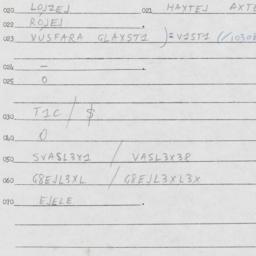 020 LOJZEJ 021 HAXTEJ AXTE
022 ROJEJ
023 VUSFARA GLAXST1 ) = V1ST1 (/10308
024 —
025 0
030 T1C / $
040 0
050 SVASL3X1 / VASL3X38
060 G8EJL3XL / G8EJL3XL3X
070 EJELE